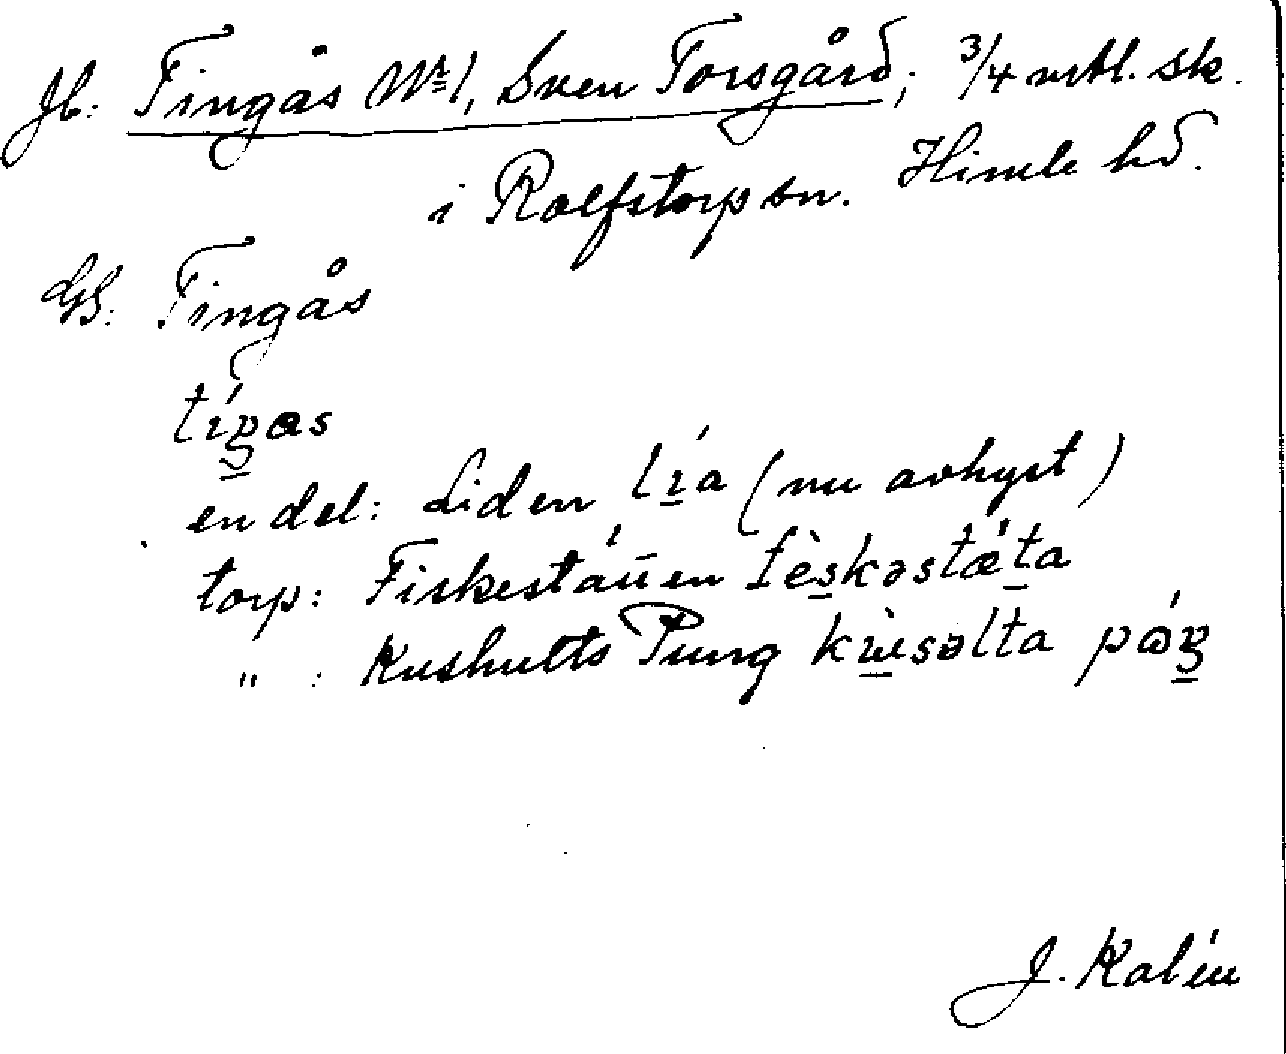 Jb: Tingås Nr 1, Sven Torsgård; 3/4 mtl. sk.
i Rolfstorp sn. Himle hd.
GS: Tingås
tíŋas
en del: Liden lía (nu avhyst)
torp: Fiskestau̅en fèskəstǽta
" : Kushults Pung kùsəlta
J. Kalén